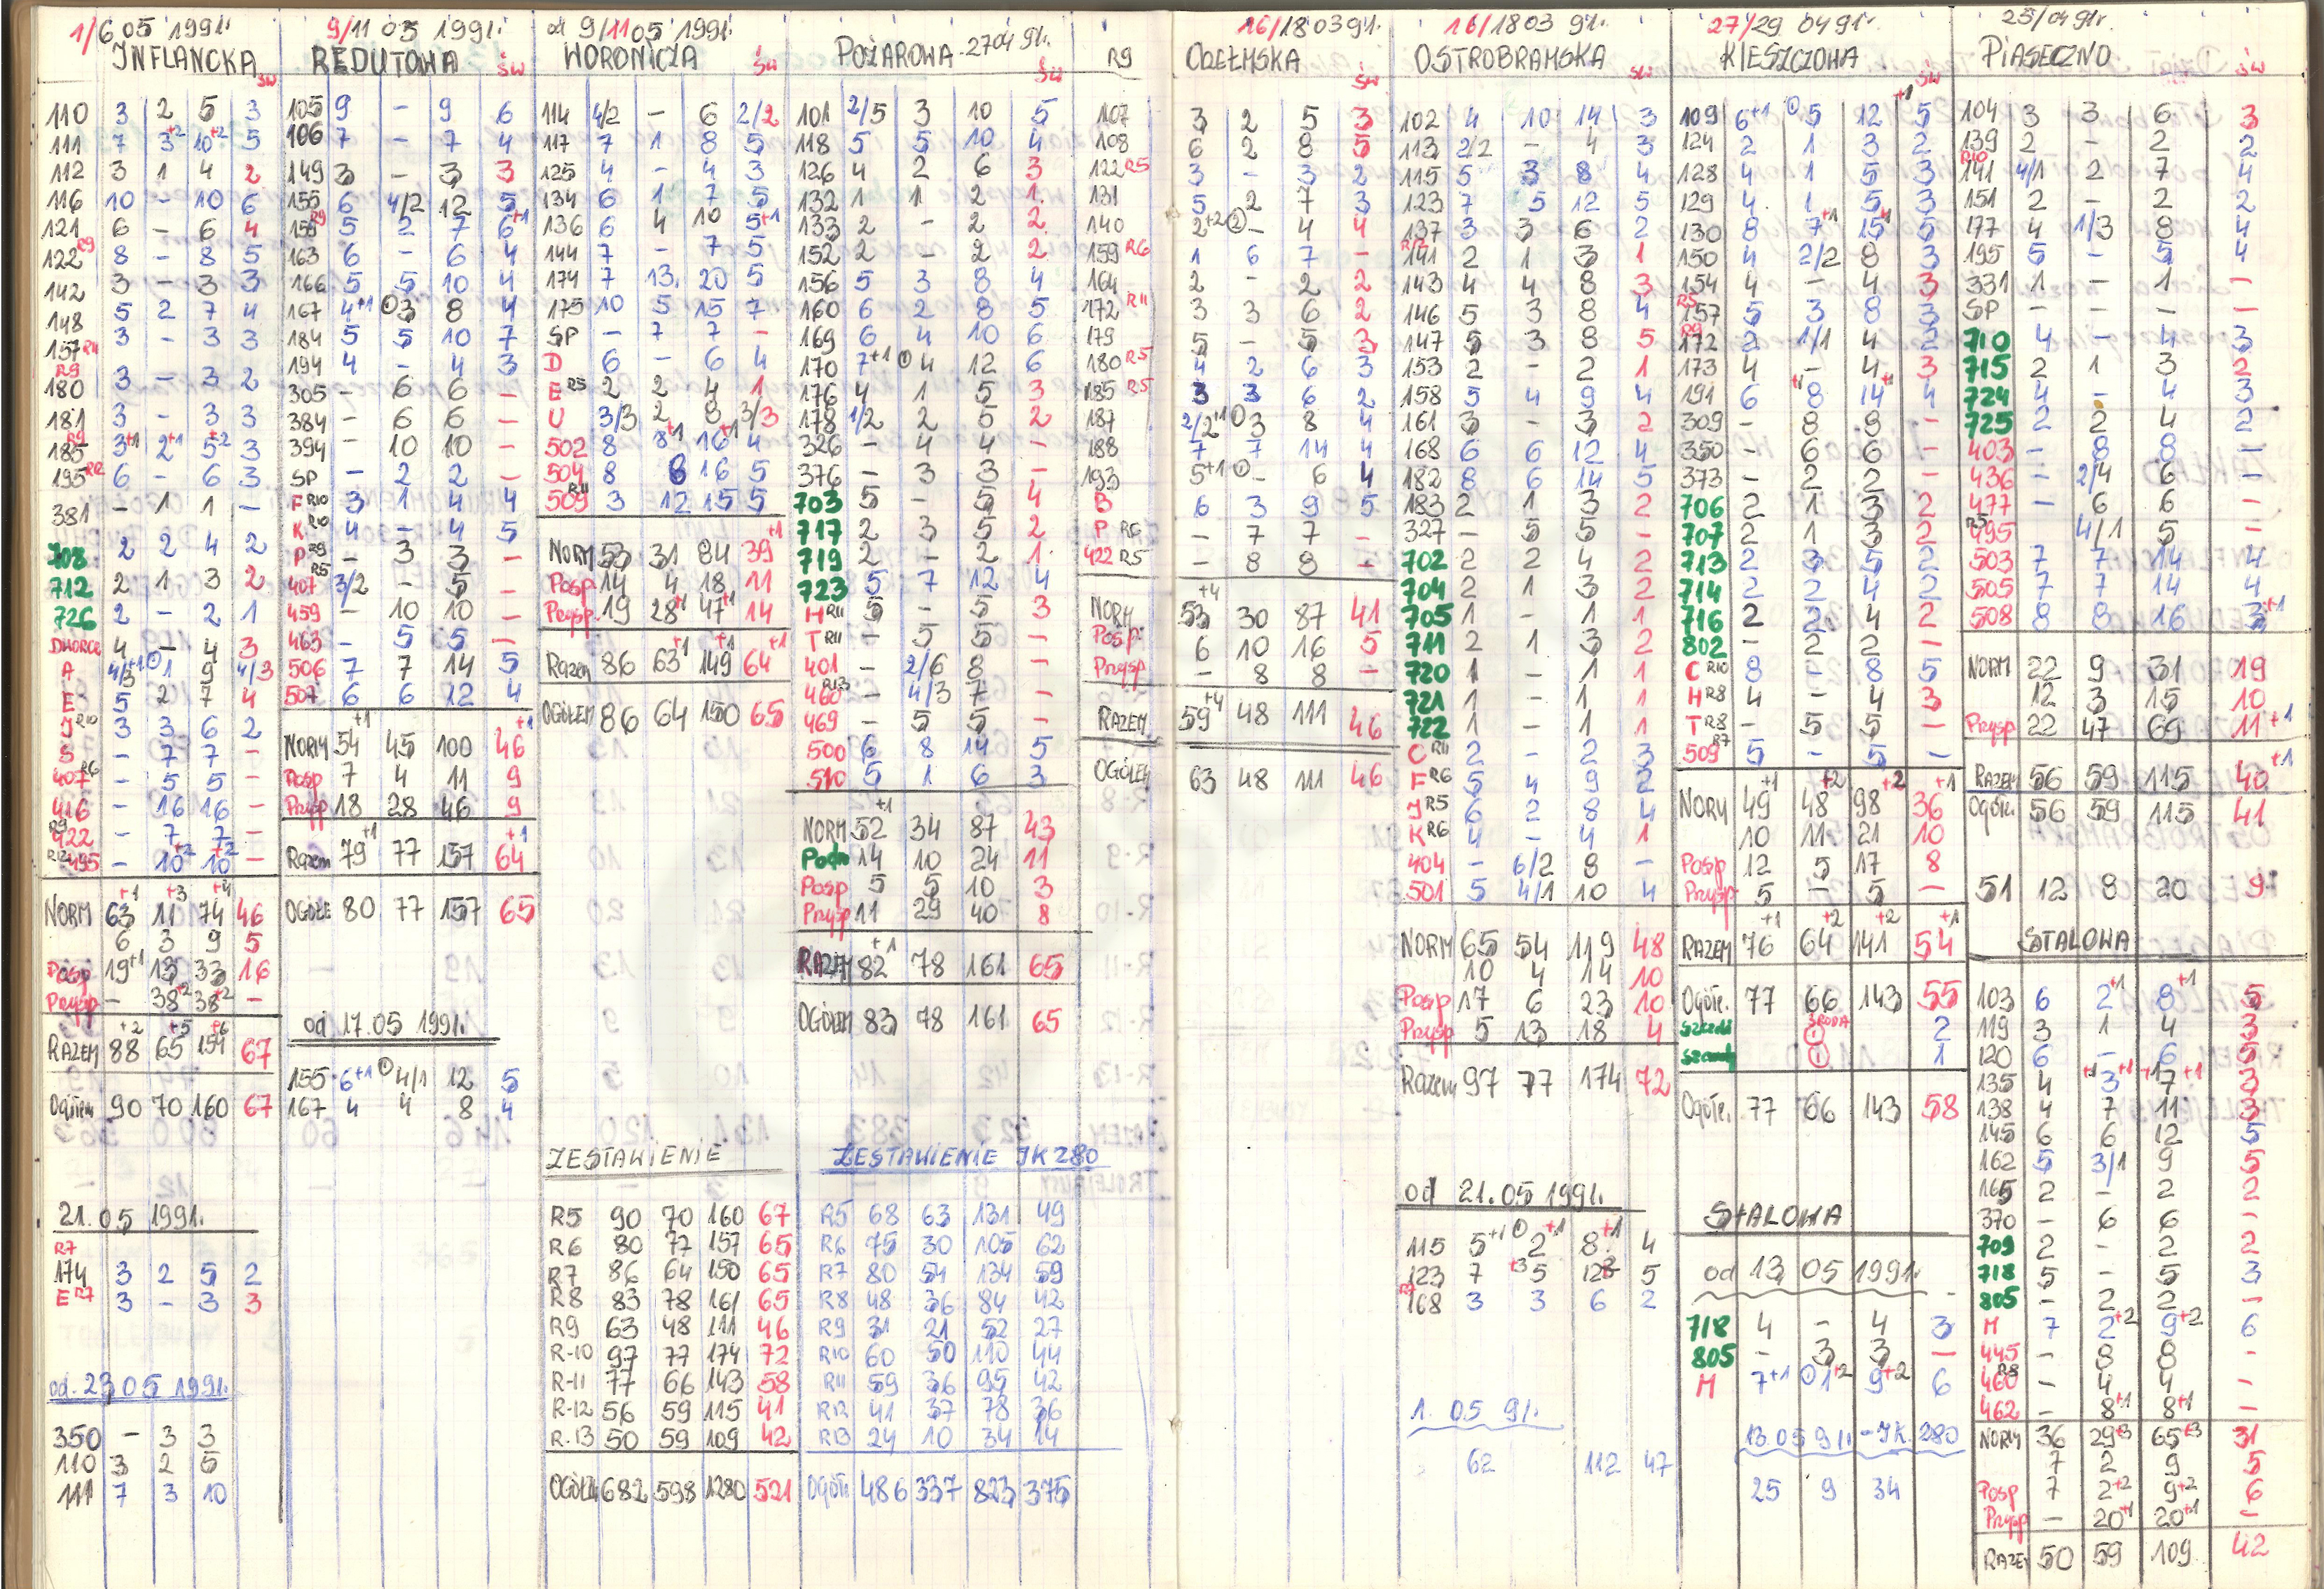 1/6 05 1991r.
INFLANCKA św
110 3 2 5 3
111 7 3+2 10+2 5
112 3 1 4 2
116 10 - 10 6
121 6 - 6 4
122 R9 8 - 8 5
142 3 - 3 3
148 5 2 7 4
157 R11 3 - 3 3
180 R9 3 - 3 2
181 3 - 3 3
185 R9 3+1 2+1 5+2 3
195 R12 6 - 6 3
381 - 1 1 -
708 2 2 4 2
712 2 1 3 2
726 2 - 2 1
DWORCE 4 - 4 3
A 4/3+1 ①1 9 4/3
E 5 2 7 4
J R10 3 3 6 2
S - 7 7 -
407 R6 - 5 5 -
416 - 16 16 -
422 R9 - 7 7 -
495 R12 - 10+2 10+2 -
NORM 63+1 11+3 74+4 46
6 3 9 5
Posp 19+1 13 33 16
Przysp - 38+2 38+2 -
RAZEM 88+2 65+5 154+6 67
Ogółem 90 70 160 67
21.05 1991r.
174 R7 3 2 5 2
E R7 3 - 3 3
od 23 05 1991r.
350 - 3 3
110 3 2 5
111 7 3 10
9/11 05 1991r.
REDUTOWA św
105 9 - 9 6
106 7 - 7 4
149 3 - 3 3
155 6 4/2 12 5
159 R9 5 2 7 6+1
163 6 - 6 4
166 5 5 10 4
167 4+1 ①3 8 4
184 5 5 10 7
194 4 - 4 3
305 - 6 6 -
384 - 6 6 -
394 - 10 10 -
SP - 2 2 -
F R10 3 1 4 4
K R10 4 - 4 5
P R9 - 3 3 -
407 R5 3/2 - 5 -
459 - 10 10 -
463 - 5 5 -
506 7 7 14 5
507 6 6 12 4
NORM 54+1 45 100 46+1
Posp 7 4 11 9
Przysp 18 28 46 9
Razem 79+1 77 157 64+1
OGÓŁE 80 77 157 65
od 17.05 1991r.
155 6+1 ①4/1 12 5
167 4 4 8 4
od 9/11 05 1991r.
WORONICZA św
114 4/2 - 6 2/2
117 7 1 8 5
125 4 - 4 3
134 6 1 7 5
136 6 4 10 5+1
144 7 - 7 5
174 7 13 20 5
175 10 5 15 7
SP - 7 7 -
D 6 - 6 4
E R5 2 2 4 1
U 3/3 2 8 3/3
502 8 8+1 16+1 4
504 8 8 16 5
509 R11 3 12 15 5
NORM 53 31 84 39+1
Posp 14 4 18 11
Przysp. 19 28+1 47+1 14
Razem 86 63+1 149+1 64+1
OGÓŁEM 86 64 150 65
ZESTAWIENIE
R5 90 70 160 67
R6 80 77 157 65
R7 86 64 150 65
R8 83 78 161 65
R9 63 48 111 46
R-10 97 77 174 72
R-11 77 66 143 58
R-12 56 59 115 41
R-13 50 59 109 42
OGÓŁEM 682 598 1280 521
POŻAROWA 27 04 91r. św
101 2/5 3 10 5
118 5 5 10 4
126 4 2 6 3
132 1 1 2 1.
133 2 - 2 2
152 2 - 2 2
156 5 3 8 4
160 6 2 8 5
169 6 4 10 6
170 7+1 ①4 12 6
176 4 1 5 3
178 1/2 2 5 2
326 - 4 4 -
376 - 3 3 -
703 5 - 5 4
717 2 3 5 2
719 2 - 2 1.
723 5 7 12 4
H R11 5 - 5 3
T R11 - 5 5 -
401 - 2/6 8 -
460 R13 - 4/3 7 -
469 - 5 5 -
500 6 8 14 5
510 5 1 6 3
NORM 52+1 34 87 43
Podm 14 10 24 11
Posp 5 5 10 3
Przysp 11 29 40 8
RAZEM 82+1 78 161 65
OGÓŁEM 83 78 161 65
ZESTAWIENIE JK 280
R5 68 63 131 49
R6 75 30 105 62
R7 80 54 134 59
R8 48 36 84 42
R9 31 21 52 27
R10 60 50 110 44
R11 59 36 95 42
R12 41 37 78 36
R13 24 10 34 14
Ogółe. 486 337 823 375
16/18 03 91r.
R9 CHEŁMSKA św
107 3 2 5 3
108 6 2 8 5
122 R5 3 - 3 2
131 5 2 7 3
140 2+2 ②- 4 4
159 R6 1 6 7 -
164 2 - 2 2
172 R11 3 3 6 2
179 5 - 5 3
180 R5 4 2 6 3
185 R5 3 3 6 2
187 2/2+1 ①3 8 4
188 7 7 14 4
193 5+1 ①- 6 4
B 6 3 9 5
P R6 - 7 7 -
422 R5 - 8 8 -
NORM 53+4 30 87 41
Posp. 6 10 16 5
Przysp - 8 8 -
RAZEM 59+4 48 111 46
OGÓŁEM 63 48 111 46
16/18 03 91r.
OSTROBRAMSKA św
102 4 10 14 3
113 2/2 - 4 3
115 5 3 8 4
123 7 5 12 5
137 3 3 6 2
141 R12 2 1 3 1
143 4 4 8 3
146 5 3 8 4
147 5 3 8 5
153 2 - 2 1
158 5 4 9 4
161 3 - 3 2
168 6 6 12 4
182 8 6 14 5
183 2 1 3 2
327 - 5 5 -
702 2 2 4 2
704 2 1 3 2
705 1 - 1 1
711 2 1 3 2
720 1 - 1 1
721 1 - 1 1
722 1 - 1 1
C R11 2 - 2 3
F R6 5 4 9 2
J R5 6 2 8 4
K R6 4 - 4 1
404 - 6/2 8 -
501 5 4/1 10 4
NORM 65 54 119 48
10 4 14 10
Posp 17 6 23 10
Przysp 5 13 18 4
Razem 97 77 174 72
od 21.05 1991r.
115 5+1 ①2+1 8+1 4
123 7 +3 5 12 5
168 R7 3 3 6 2
1. 05 91r.
62 112 47
27/29 04 91r.
KLESZCZOWA św
109 6+1 ①5 12+1 5
124 2 1 3 2
128 4 1 5 3
129 4 1 5 3
130 8 7+1 15+1 5
150 4 2/2 8 3
154 4 - 4 3
157 R5 5 3 8 3
172 R9 2 1/1 4 2
173 4 - 4 3
191 6 8+1 14+1 4
309 - 8 8 -
350 - 6 6 -
373 - 2 2 -
706 2 1 3 2
707 2 1 3 2
713 2 3 5 2
714 2 2 4 2
716 2 2 4 2
802 - 2 2 -
C R10 8 - 8 5
H R8 4 - 4 3
T R8 - 5 5 -
509 R7 5 - 5 -
NORM 49+1 48+2 98+2 36+1
10 11 21 10
Posp 12 5 17 8
Przysp 5 - 5 -
RAZEM 76+1 64+2 141+2 54+1
Ogółe. 77 66 143 55
ŚRODA 2
1
Ogółe. 77 66 143 58
STALOWA
od 13 05 1991r.
718 4 - 4 3
805 - 3 3 -
M 7+1 ①1+2 9+2 6
13.05 91r. - JK. 280
25 9 34
25/04 91r
PIASECZNO św
104 3 3 6 3
139 2 - 2 2
141 R10 4/1 2 7 4
151 2 - 2 2
177 4 1/3 8 4
195 5 - 5 4
331 1 - 1 -
SP - - - -
710 4 - 4 3
715 2 1 3 2
724 4 - 4 3
725 2 2 4 2
403 - 8 8 -
436 - 2/4 6 -
477 - 6 6 -
495 R5 4/1 5 -
503 7 7 14 4
505 7 7 14 4
508 8 8 16 3+1
NORM 22 9 31 19
12 3 15 10
Przysp 22 47 69 11+1
RAZEM 56 59 115 40+1
Ogółe. 56 59 115 41
51 12 8 20 9
STALOWA
103 6 2+1 8+1 5
119 3 1 4 3
120 6 - 6 5
135 4 +1 3+1 17+1 3
138 4 7 11 3
145 6 6 12 5
162 5 3/1 9 5
165 2 - 2 2
370 - 6 6 -
709 2 - 2 2
718 5 - 5 3
805 - 2 2 -
M 7 2+2 9+2 6
445 - 8 8 -
460 R8 - 4 4 -
462 - 8+1 8+1 -
NORM 36 29+3 65+3 31
7 2 9 5
Posp 7 2+2 9+2 6
Przysp - 20+1 20+1 -
RAZEM 50 59 109 42